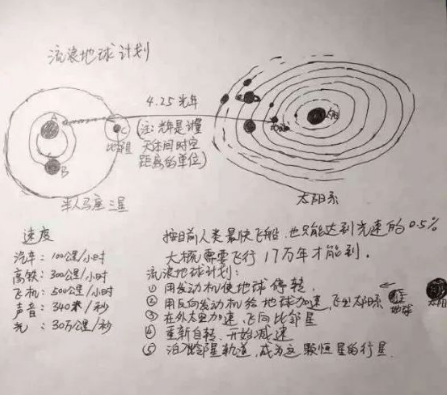 流浪地球计划
4.25光年
A
B
C
(注:光年是计量
天体间时空
距离的单位)
半人马座三星
太阳系
速度
汽车:100公里/小时
高铁:300公里/小时
飞机:500公里/小时
声音:340米/秒
光:30万公里/秒
按目前人类最快飞船,也只能达到光速的0.5%
大概需要飞行17万年才能到.
流浪地球计划:
① 用发动机使地球停转.
② 用反向发动机给地球加速,飞出太阳系
③ 在外太空加速,飞向比邻星
④ 重新自转,开始减速
⑤ 泊入比邻星轨道,成为这颗恒星的行星.
地球
太阳